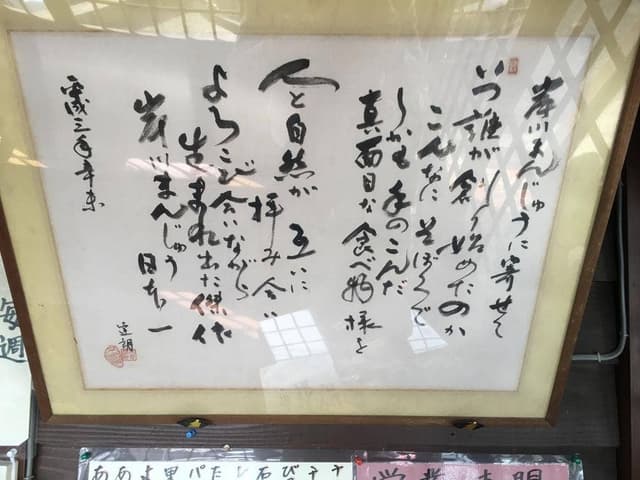 岸川まんじゅうに寄せて
いつ誰が創り始めたのか
こんなに そぼくで
しかも 手のこんだ
真面目な食べ物様を
人と自然が 互いに
拝み合い
よろこび合いながら
生まれ出た傑作
岸川まんじゅう 日本一
平成三年辛未
毎週